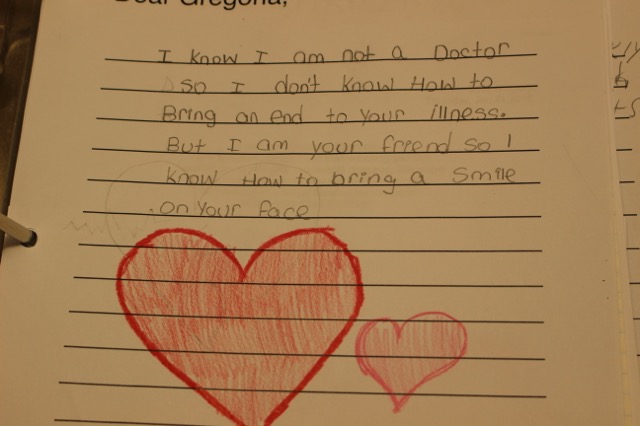 Dear Gregoria,
I know I am not a Doctor
so I don't know How to
Bring an end to your illness.
But I am your friend so I
know How to bring a smile
on your face